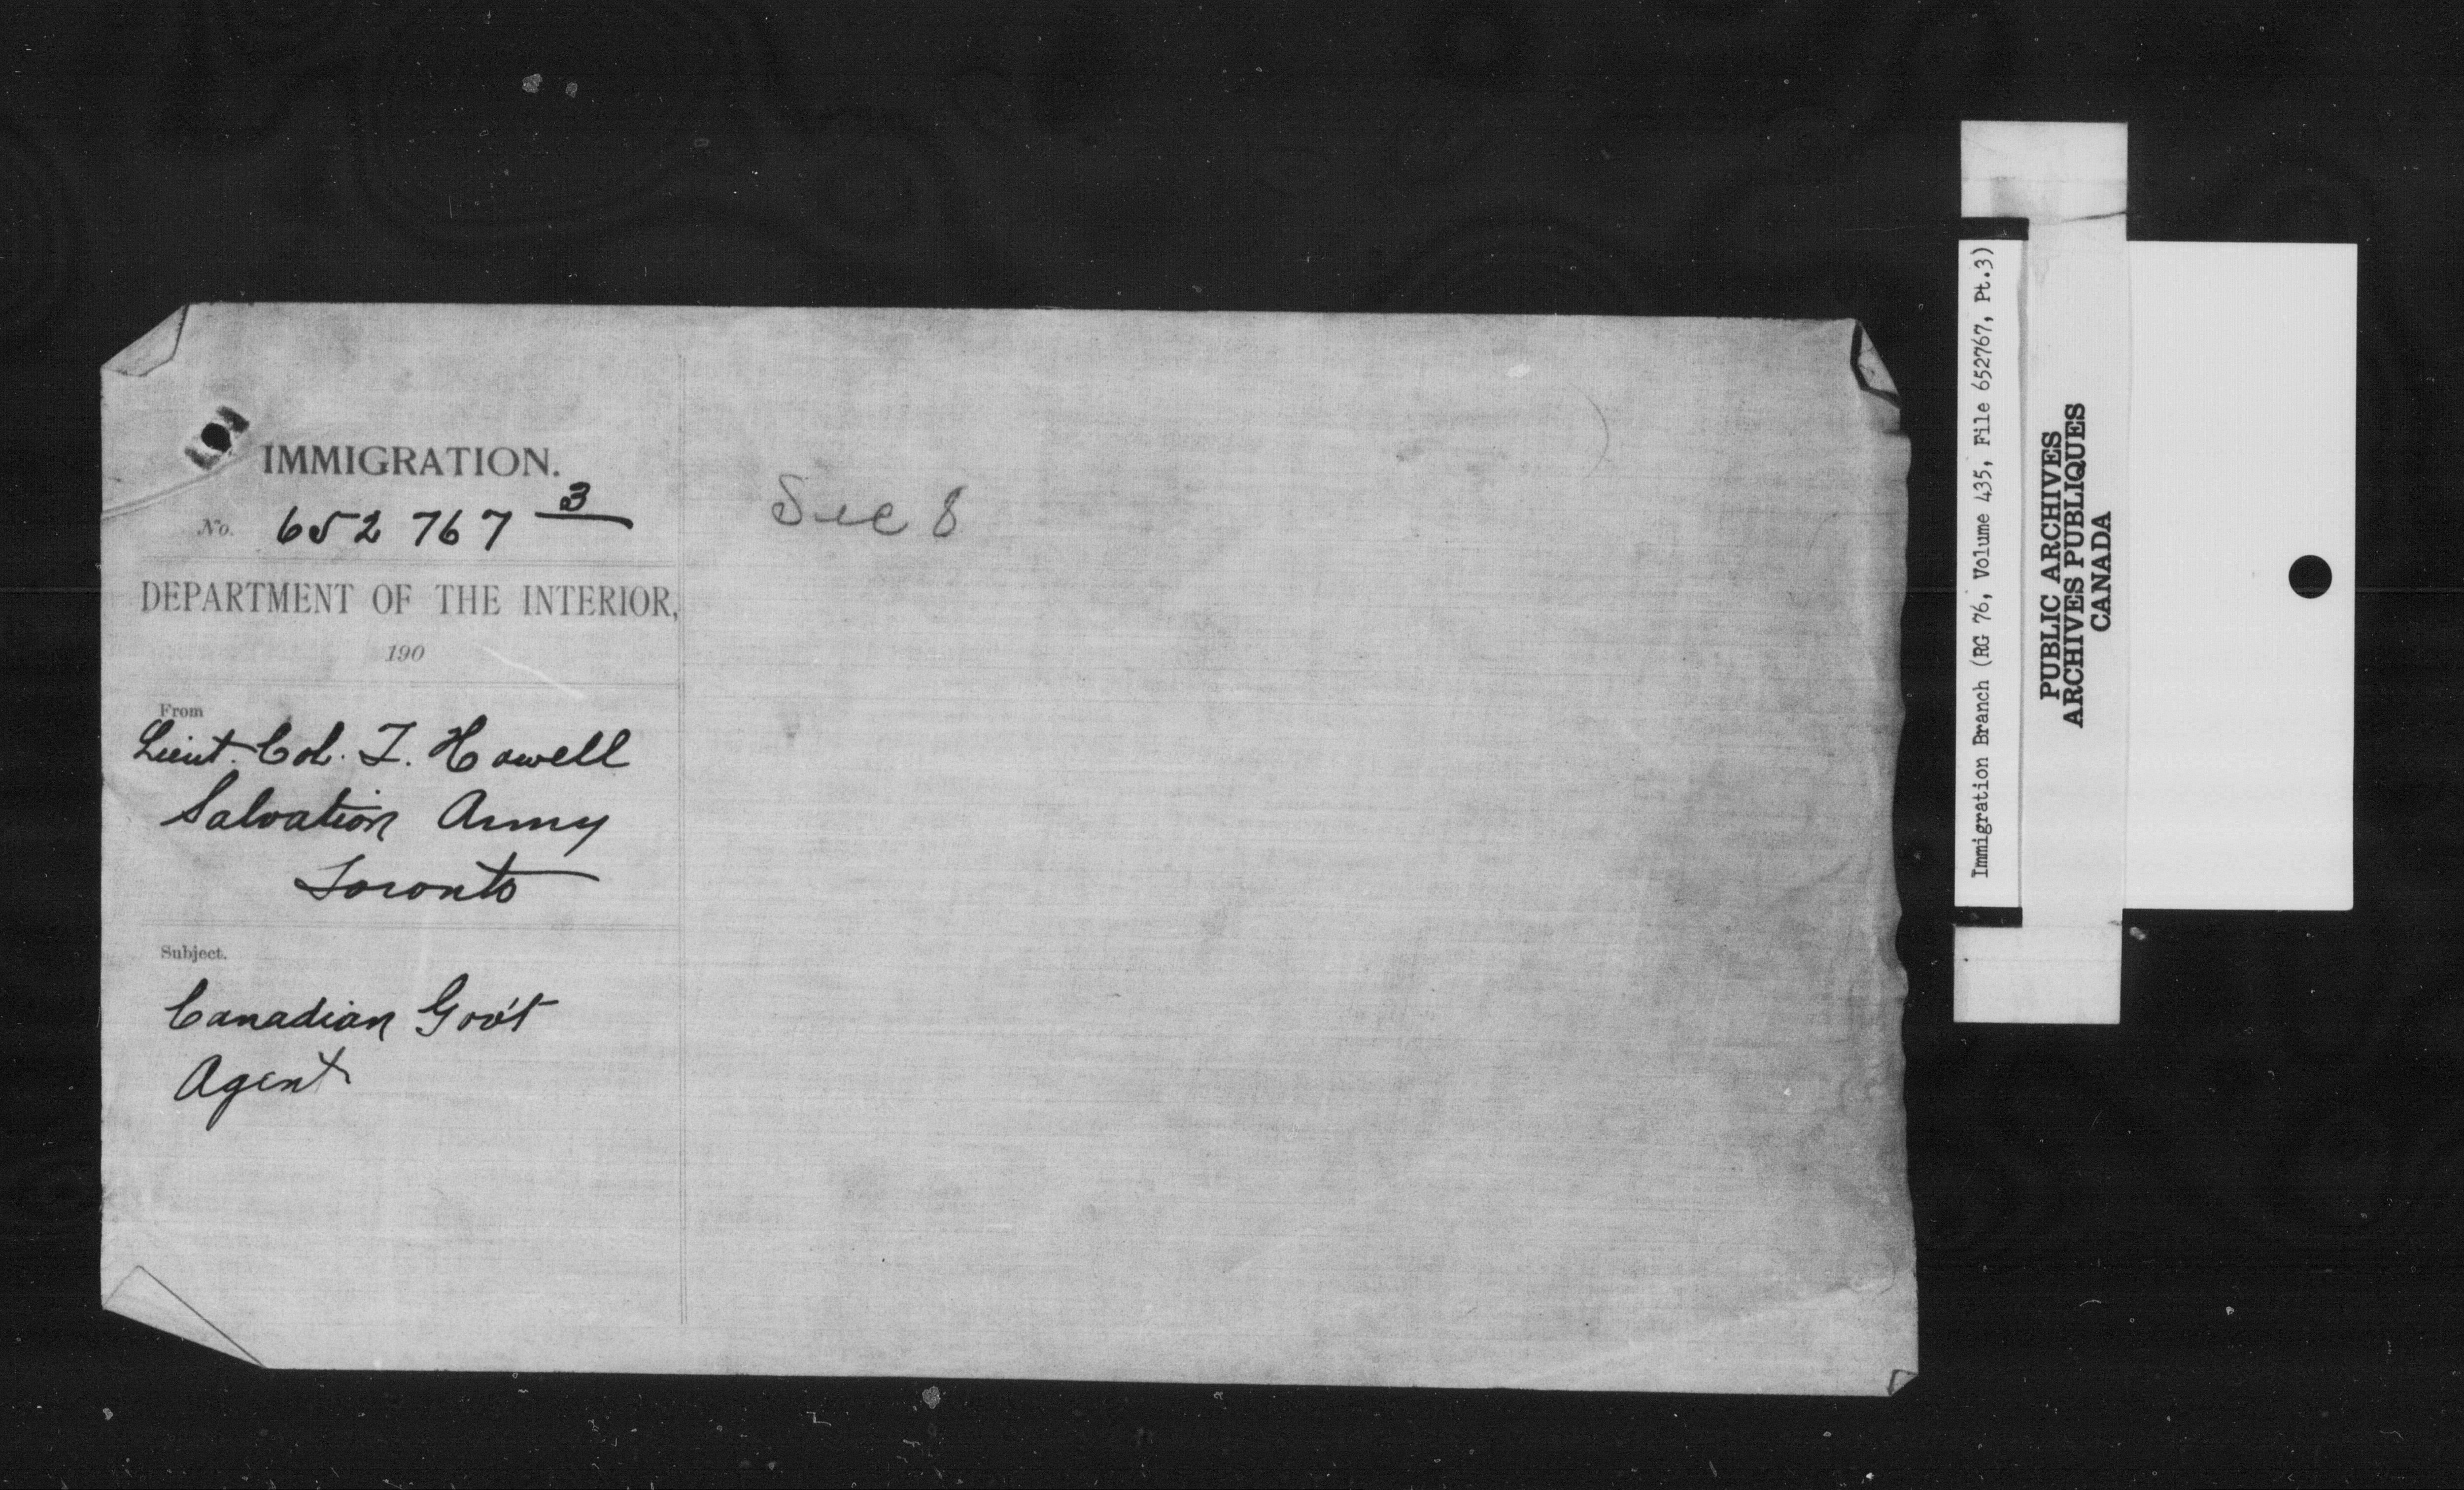 IMMIGRATION.
No. 652767 3
DEPARTMENT OF THE INTERIOR,
190
From
Lieut. Col. T. Howell
Salvation Army
Toronto
Subject.
Canadian Gov't
Agent
Sec 8
Immigration Branch (RG 76, Volume 435, File 652767, Pt.3)
PUBLIC ARCHIVES
ARCHIVES PUBLIQUES
CANADA